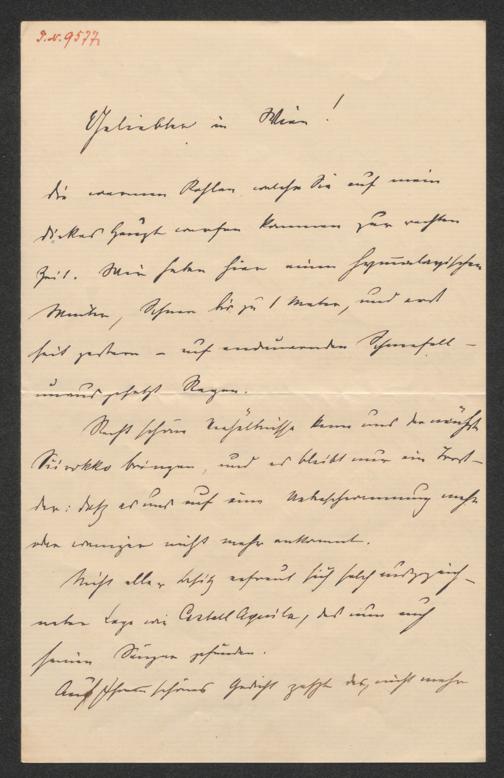 I.N. 9577
Geliebter in Wien!
Die warmen Kohlen welche Sie auf mein
dickes Haupt werfen kommen zur rechten
Zeit. Wir haben hier einen himmalayischen
Winter, Schnee bis zu 1 Meter, und erst
seit gestern – auf andauernden Schneefall –
unausgesetzt Regen.
Recht schöne Verhältnisse kann uns der nächste
Sirokko bringen, und es bleibt nur ein Trost
der: daß es uns auf eine Überschwemmung mehr
oder weniger nicht mehr ankommt.
Nicht aller Besitz erfreut sich solch ausgezeich-
neter Lage wie Castell Aquila, das nun auch
seinen Sänger gefunden.
Auf schönes Gedicht das, nicht mehr